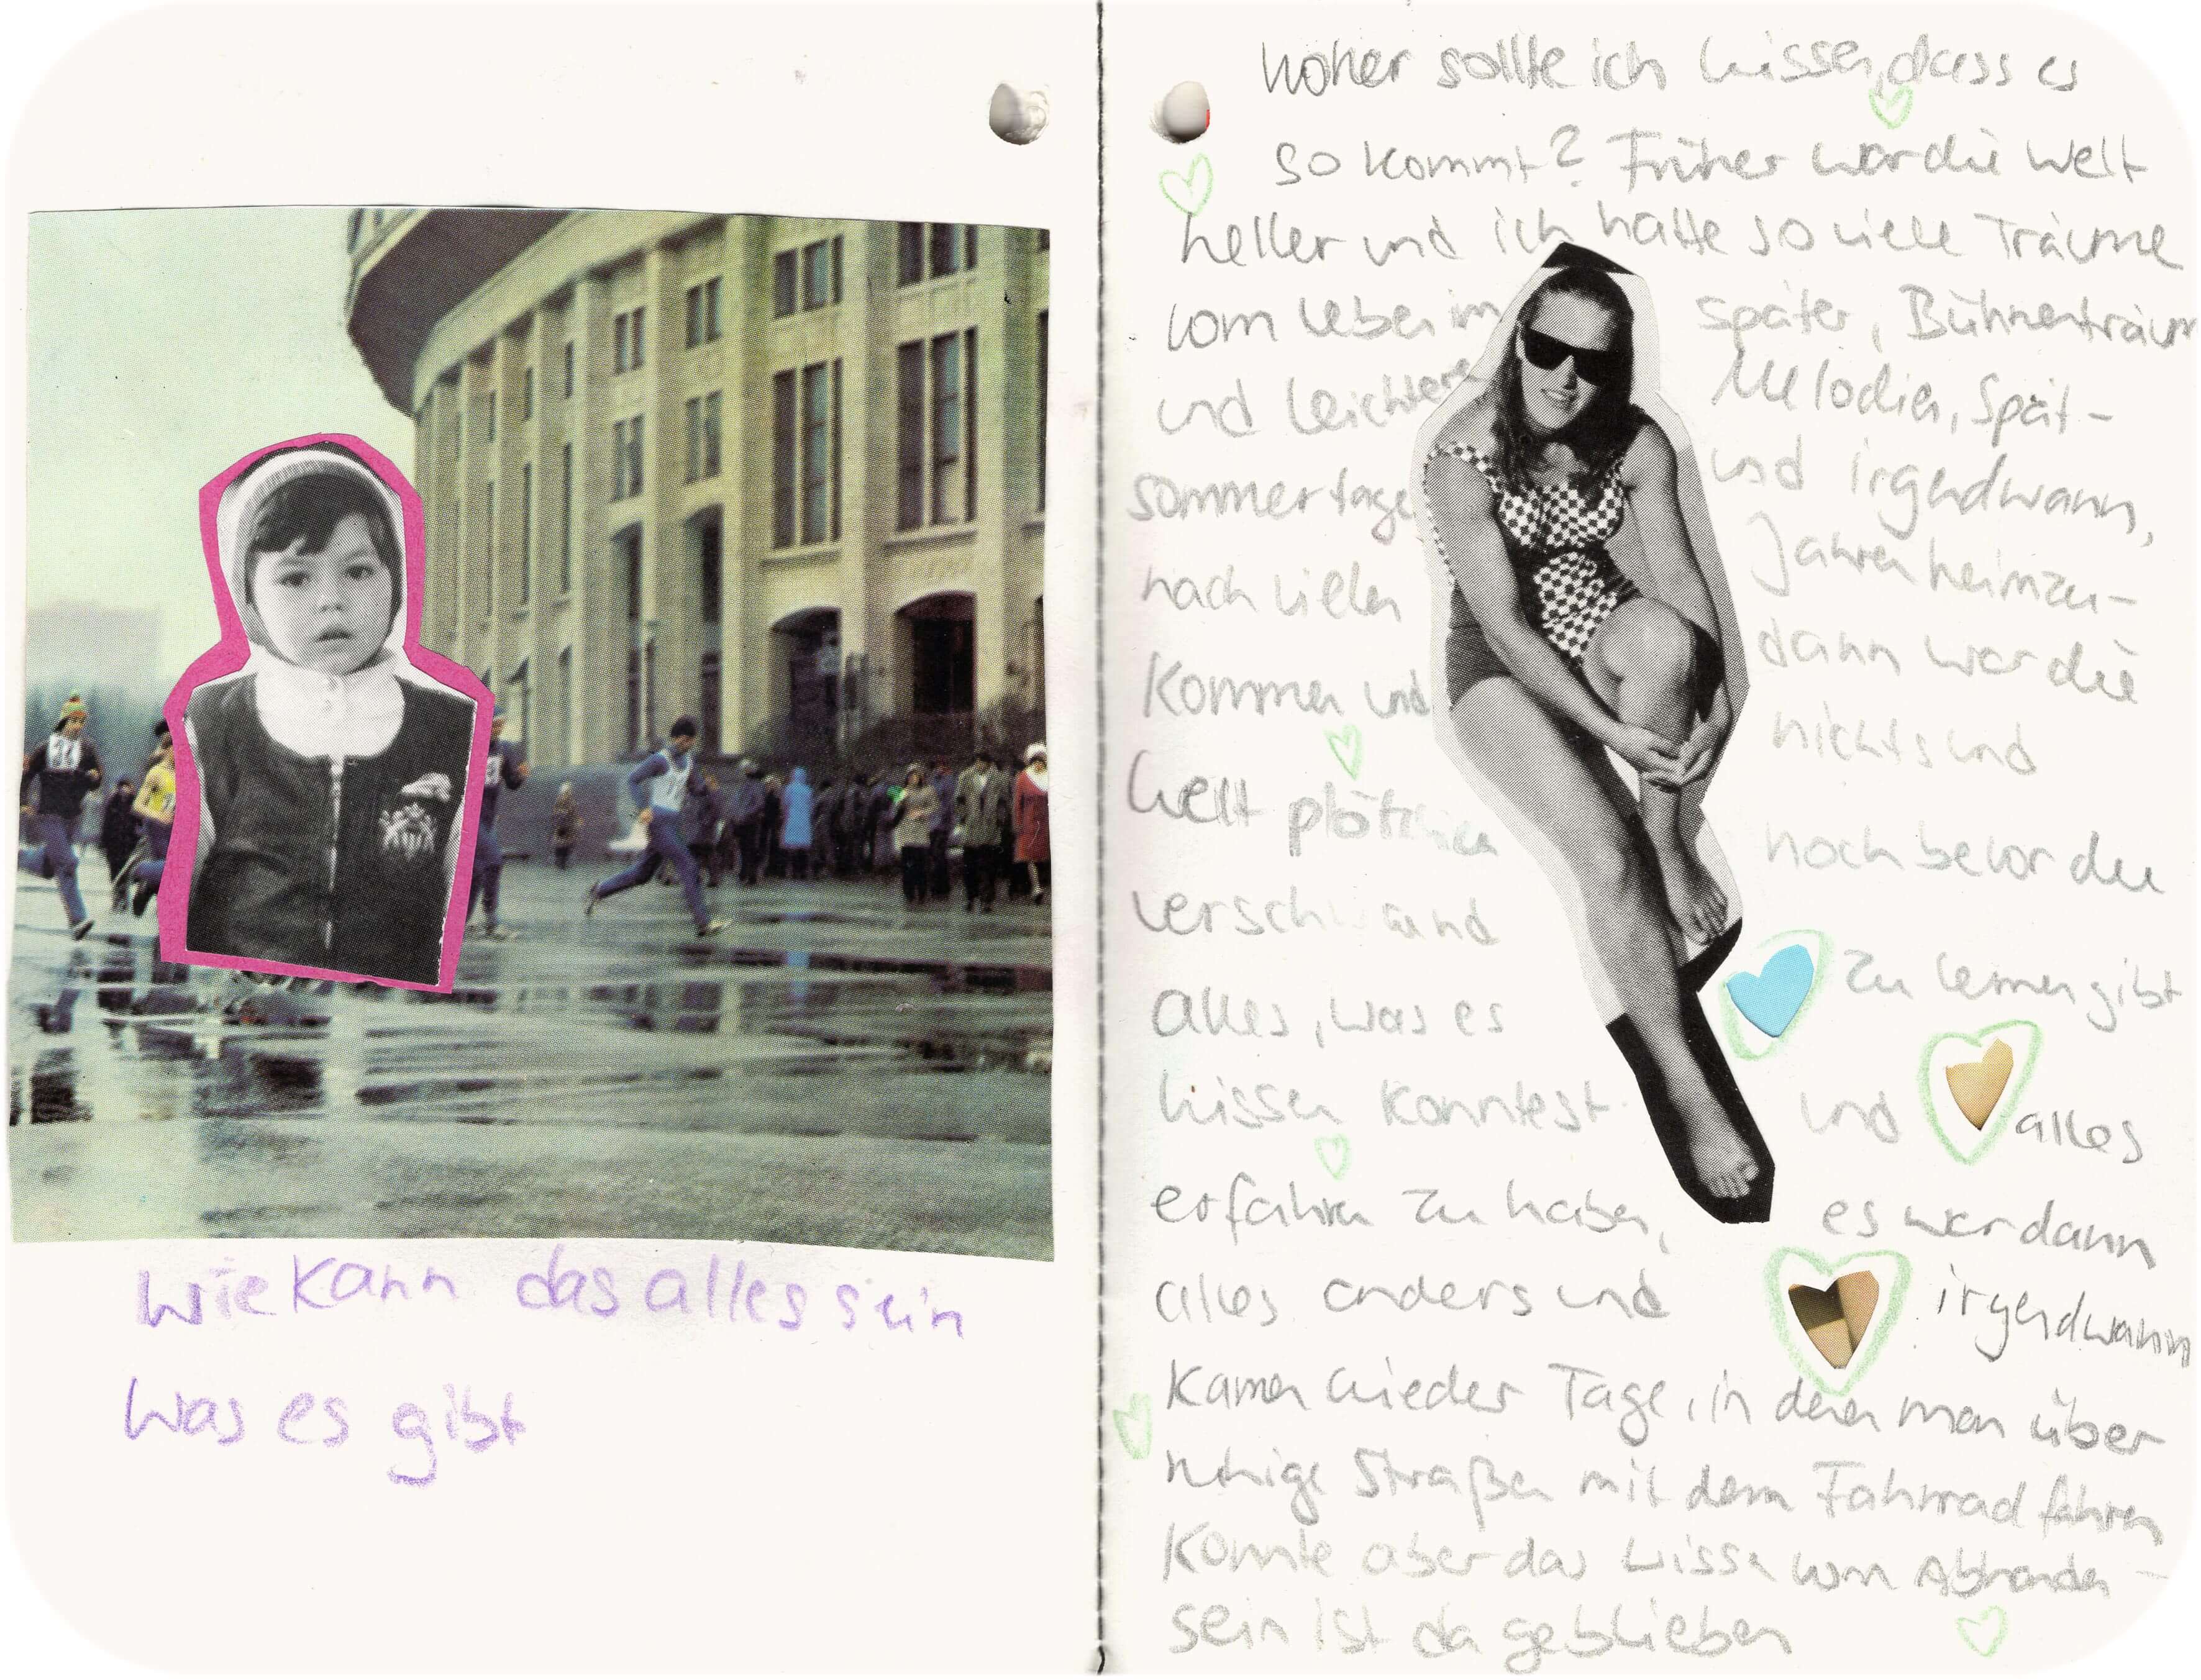 wie kann das alles sein
was es gibt
woher sollte ich wissen, dass es
so kommt? Früher war die Welt
heller und ich hatte so viele Träume
vom Leben im später, Bühnenträum
und leichtere Melodien, Spät-
sommertage und irgendwann,
nach vielen Jahren heimzu-
kommen und dann war die
Welt plötzlich nichts und
verschwand noch bevor du
alles, was es zu lernen gibt
wissen konntest und alles
erfahren zu haben, es war dann
alles anders und irgendwann
kamen wieder Tage, in denen man über
ruhige Straßen mit dem Fahrrad fahren
konnte aber das Wissen vom
sein ist da geblieben